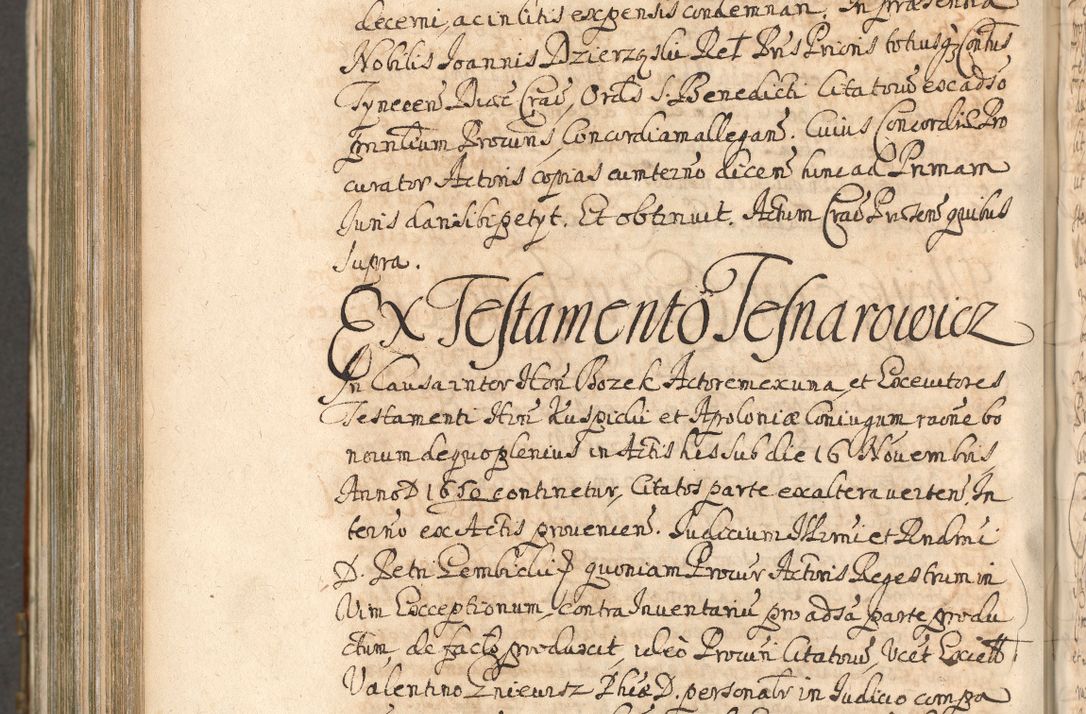 decerni, ac in litis expensis condemnari. In præsentia
Nobilis Joannis Dzierzęski Rel Pris Prioris totiusq Contus
Tynecen Diæc Crac, Ordis S. Benedicti Citatorū ex adso
Concordiam allegans. Cuius Concordiæ Pro
curator Actoris copias cum termo dicens hunc ad Primam
Juris dari sibi petyt. Et obtinuit. Actum Crac Præsen quibus
supra.
Ex Testamento Tesnarowicz
In Causa inter Hon Bozek Actorem ex una, et Executores
Testamenti Hon Kuspicki et Apoloniæ Coniugum raone bo
norum de quo plenius in Actis his sub die 16 Novembris
Anno D 1650 continetur, Citatos parte ex altera vertens In
termo ex Actis provenien. Judicium Illrmi et Rndmi
D. Petri Gembicki quoniam Procur Actoris Regestrum in
Vim Exceptionum, contra Inventariū pro adsa parte produ
ctum, de facto produxit, ideò Procuri Citatorū, Vcet Excell
Valentino Phiæ D. personalr in Judicio compa